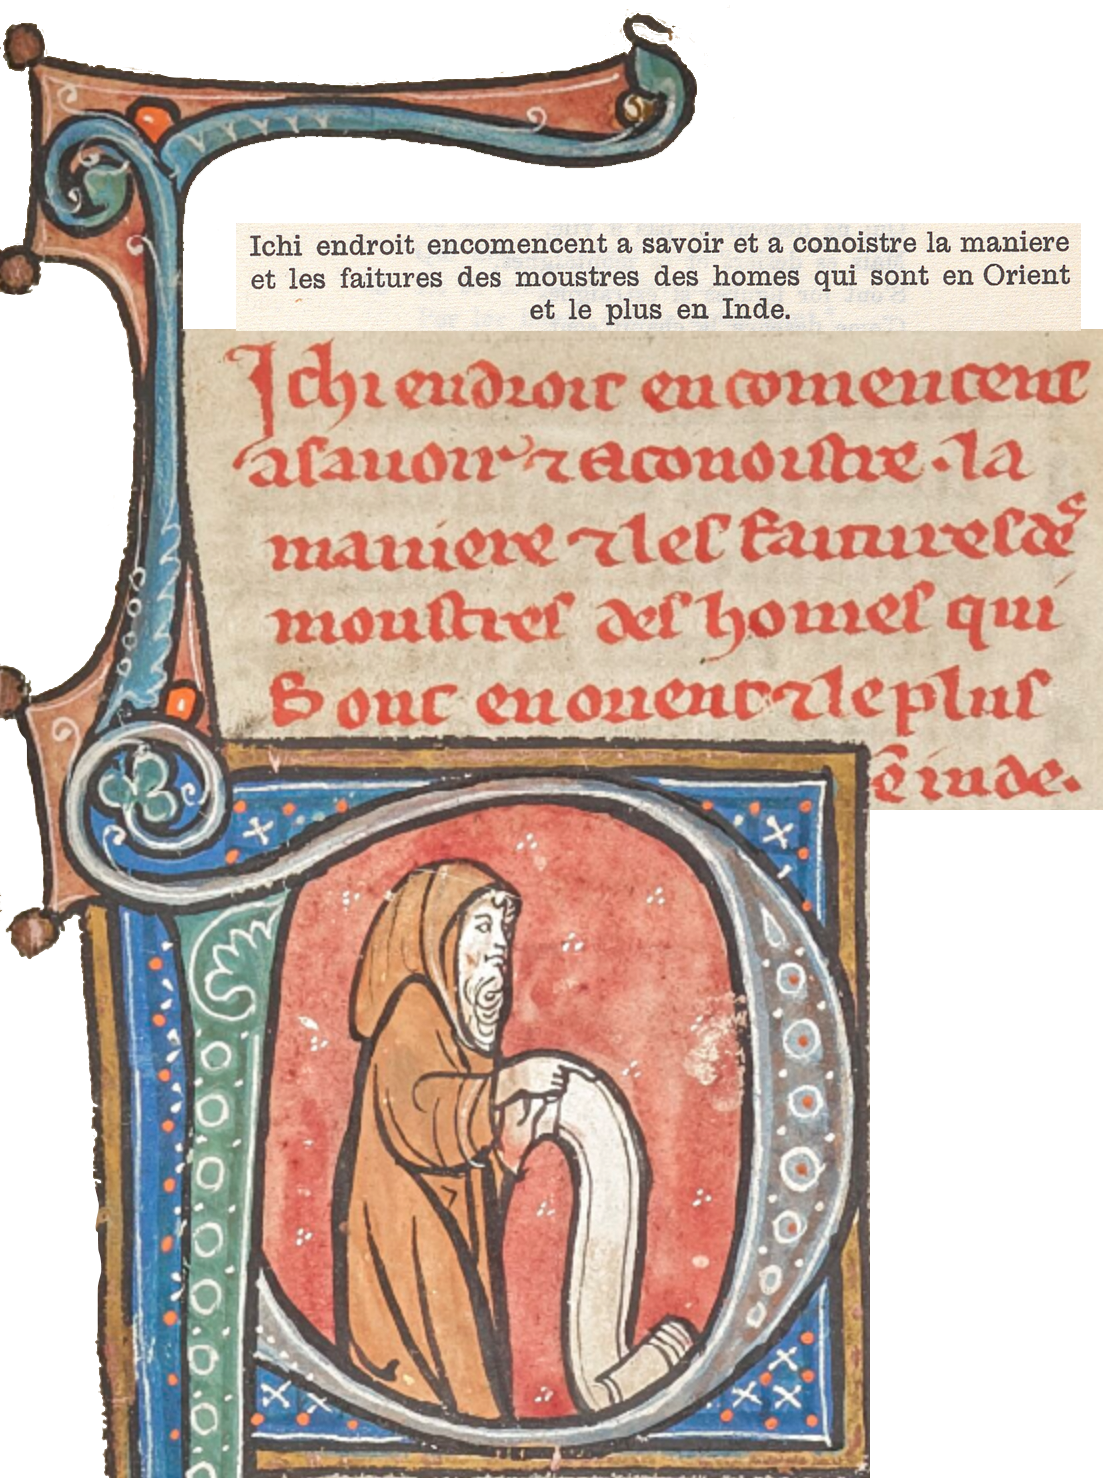 Ichi endroit encomencent a savoir et a conoistre la maniere
et les faitures des moustres des homes qui sont en Orient
et le plus en Inde.
Ichi endroit en comencent
a sauoir ⁊ a conoistre · la
maniere ⁊ les faitures des
moustres des homes qui
Sont en orient ⁊ le plus
ē inde.